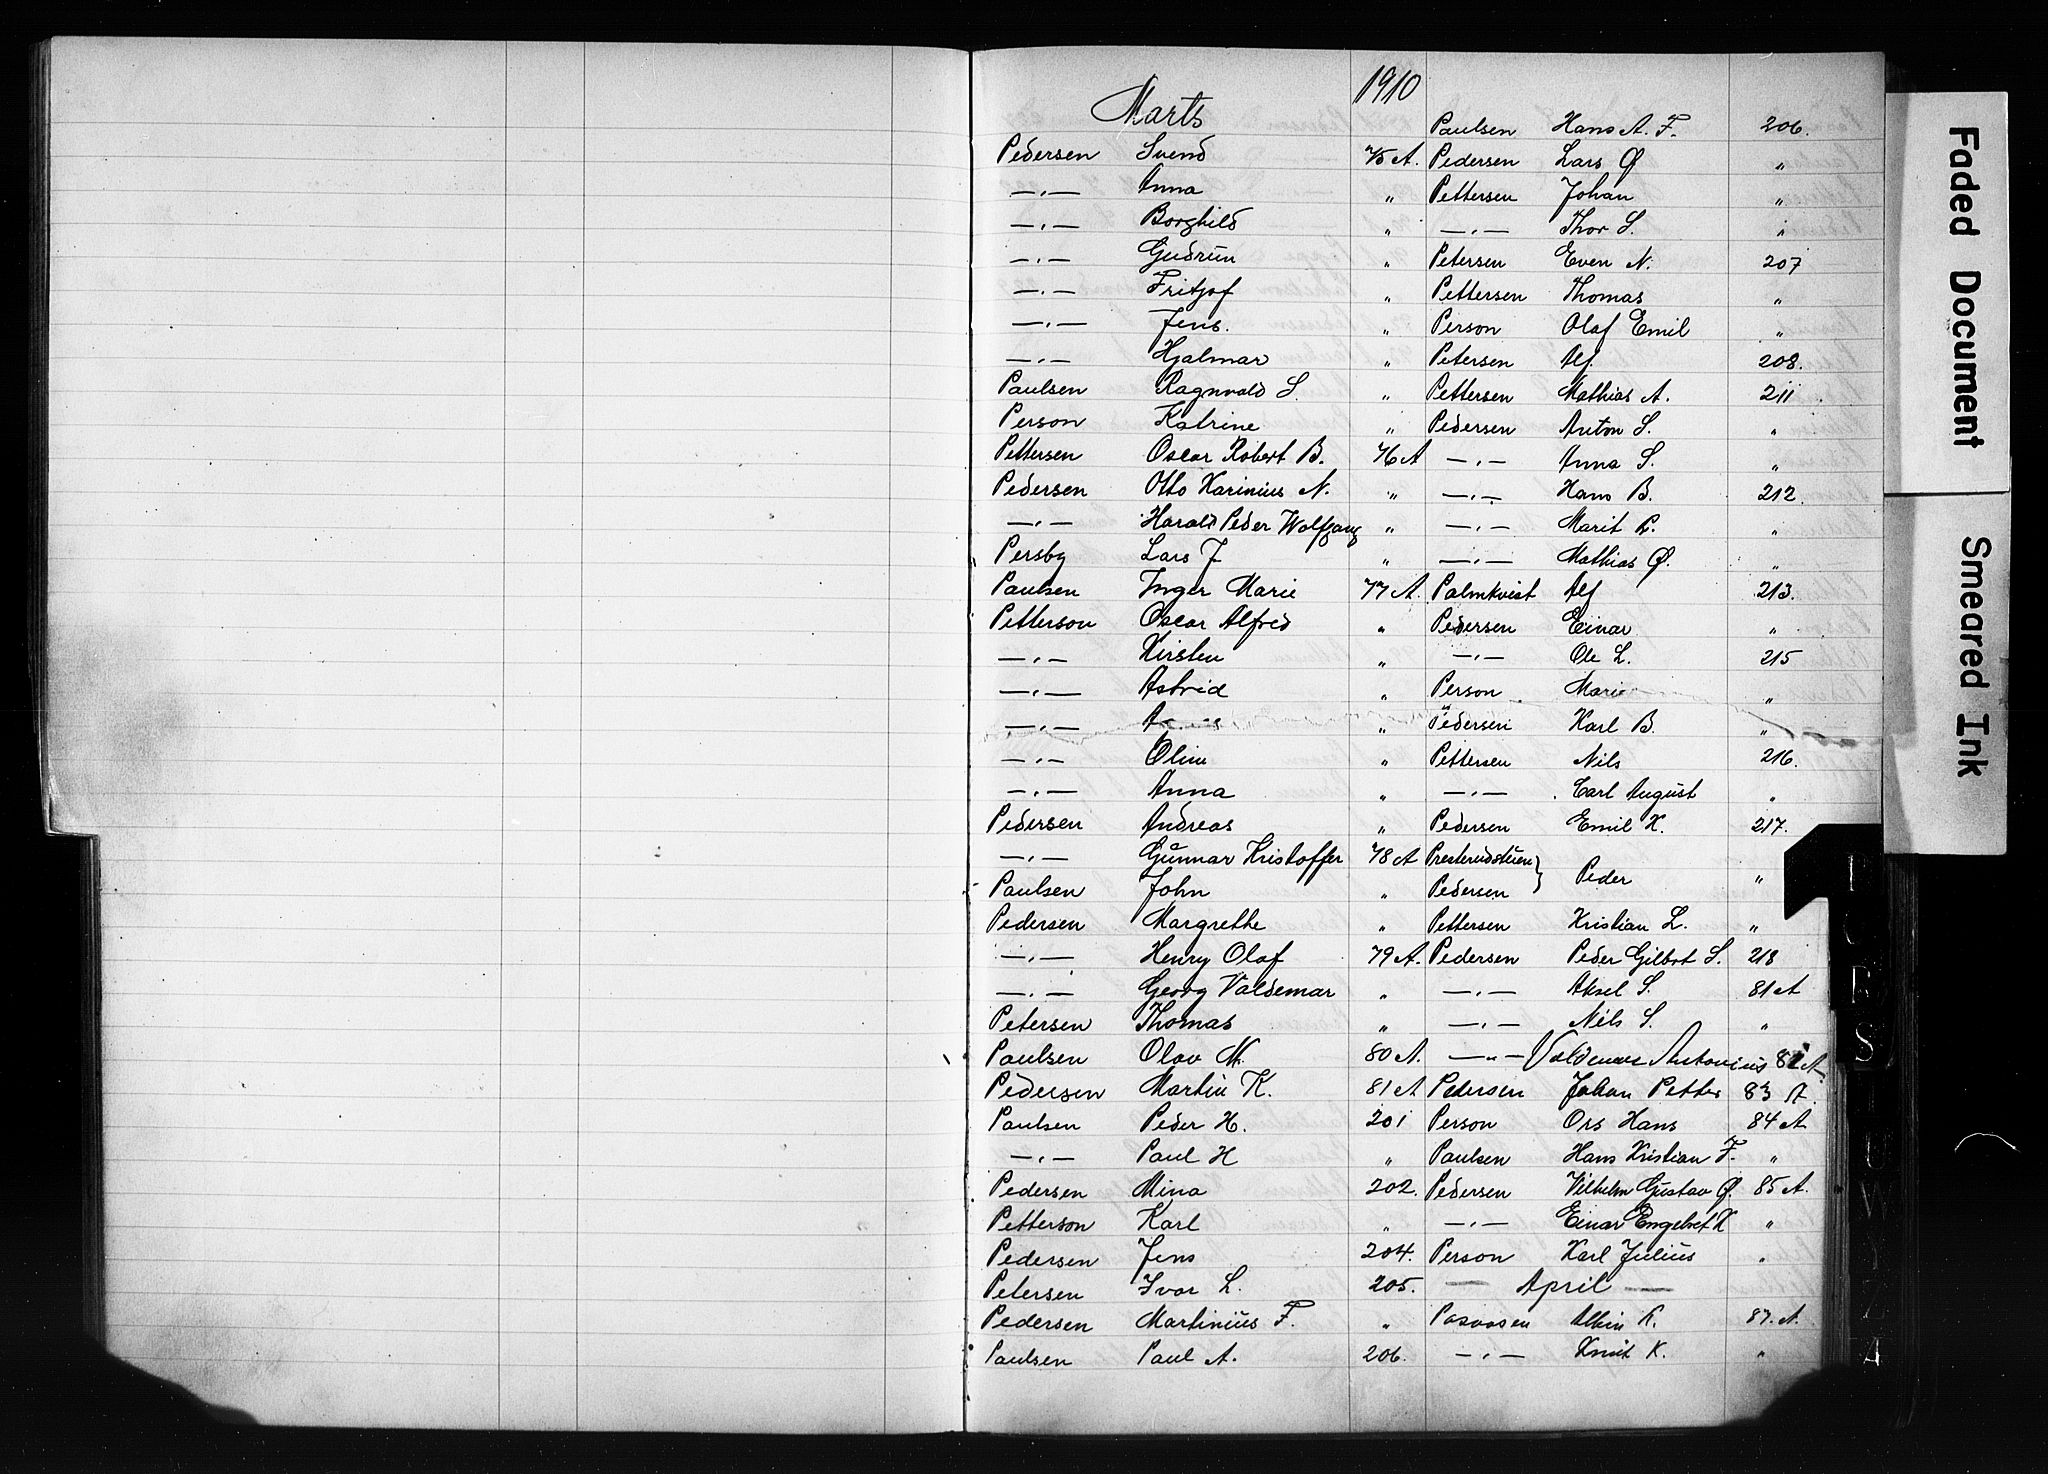 1910
Marts
Pedersen Svend 75 A.
—„— Anna „
—„— Borghild „
—„— Gudrun „
—„— Fritjof „
—„— Jens. „
—„— Hjalmar „
Paulsen Ragnvald S. „
Person Katrine „
Pettersen Oscar Robert B. 76 A
Pedersen Otto Karinius N. „
—„— Harald Peder Wolfgang „
Persby Lars J „
Paulsen Inger Marie 77 A.
Petterson Oscar Alfred „
—„— Kirsten „
—„— Astrid „
—„— „
—„— Oline „
—„— Anna „
Pedersen Andreas „
—„— Gunnar Kristoffer 78 A
Paulsen John „
Pedersen Margrethe „
—„— Henry Olaf 79 A.
—„— Georg Valdemar „
Petersen Thomas „
Paulsen Olav M. 80 A.
Pedersen Martin K. 81 A
Paulsen Peder H. 201
—„— Paul H „
Pedersen Mina 202.
Petterson Karl „
Pedersen Jens 204.
Petersen Ivar L. 205.
Pedersen Martinius F. „
Paulsen Paul A. 206.
Paulsen Hans A. F. 206.
Pedersen Lars Ø „
Pettersen Johan „
—„— Thor S. „
Petersen Even N. 207
Pettersen Thomas „
Person Olaf Emil „
Petersen Alf. 208.
Pettersen Mathias A. 211
Pedersen Anton S. „
—„— Anna S. „
—„— Hans B. 212.
—„— Marit P. „
—„— Mathias Ø. „
Palmkvist Alf 213.
Pedersen Einar „
—„— Ole L. 215
Person Marie „
Pedersen Karl B. „
Pettersen Nils 216.
—„— Carl August „
Pedersen Emil K. 217.
Presterudstuen }
Pedersen } Peder „
Pettersen Kristian L. „
Pedersen Peder Gilbert S. 218
—„— Aksel S. 81 A
—„— Nils S. „
—„— Valdemar Antonius 82 A.
Petersen Johan Petter 83 A.
Person Ors Hans 84 A
Paulsen Hans Kristian F. „
Pedersen Vilhelm Gustav Ø. 85 A.
—„— Einar Engebret K „
Person Karl Julius „
— April —
Albin K. 87. A.
—„— Knut K. „
Faded Document
Smeared Ink